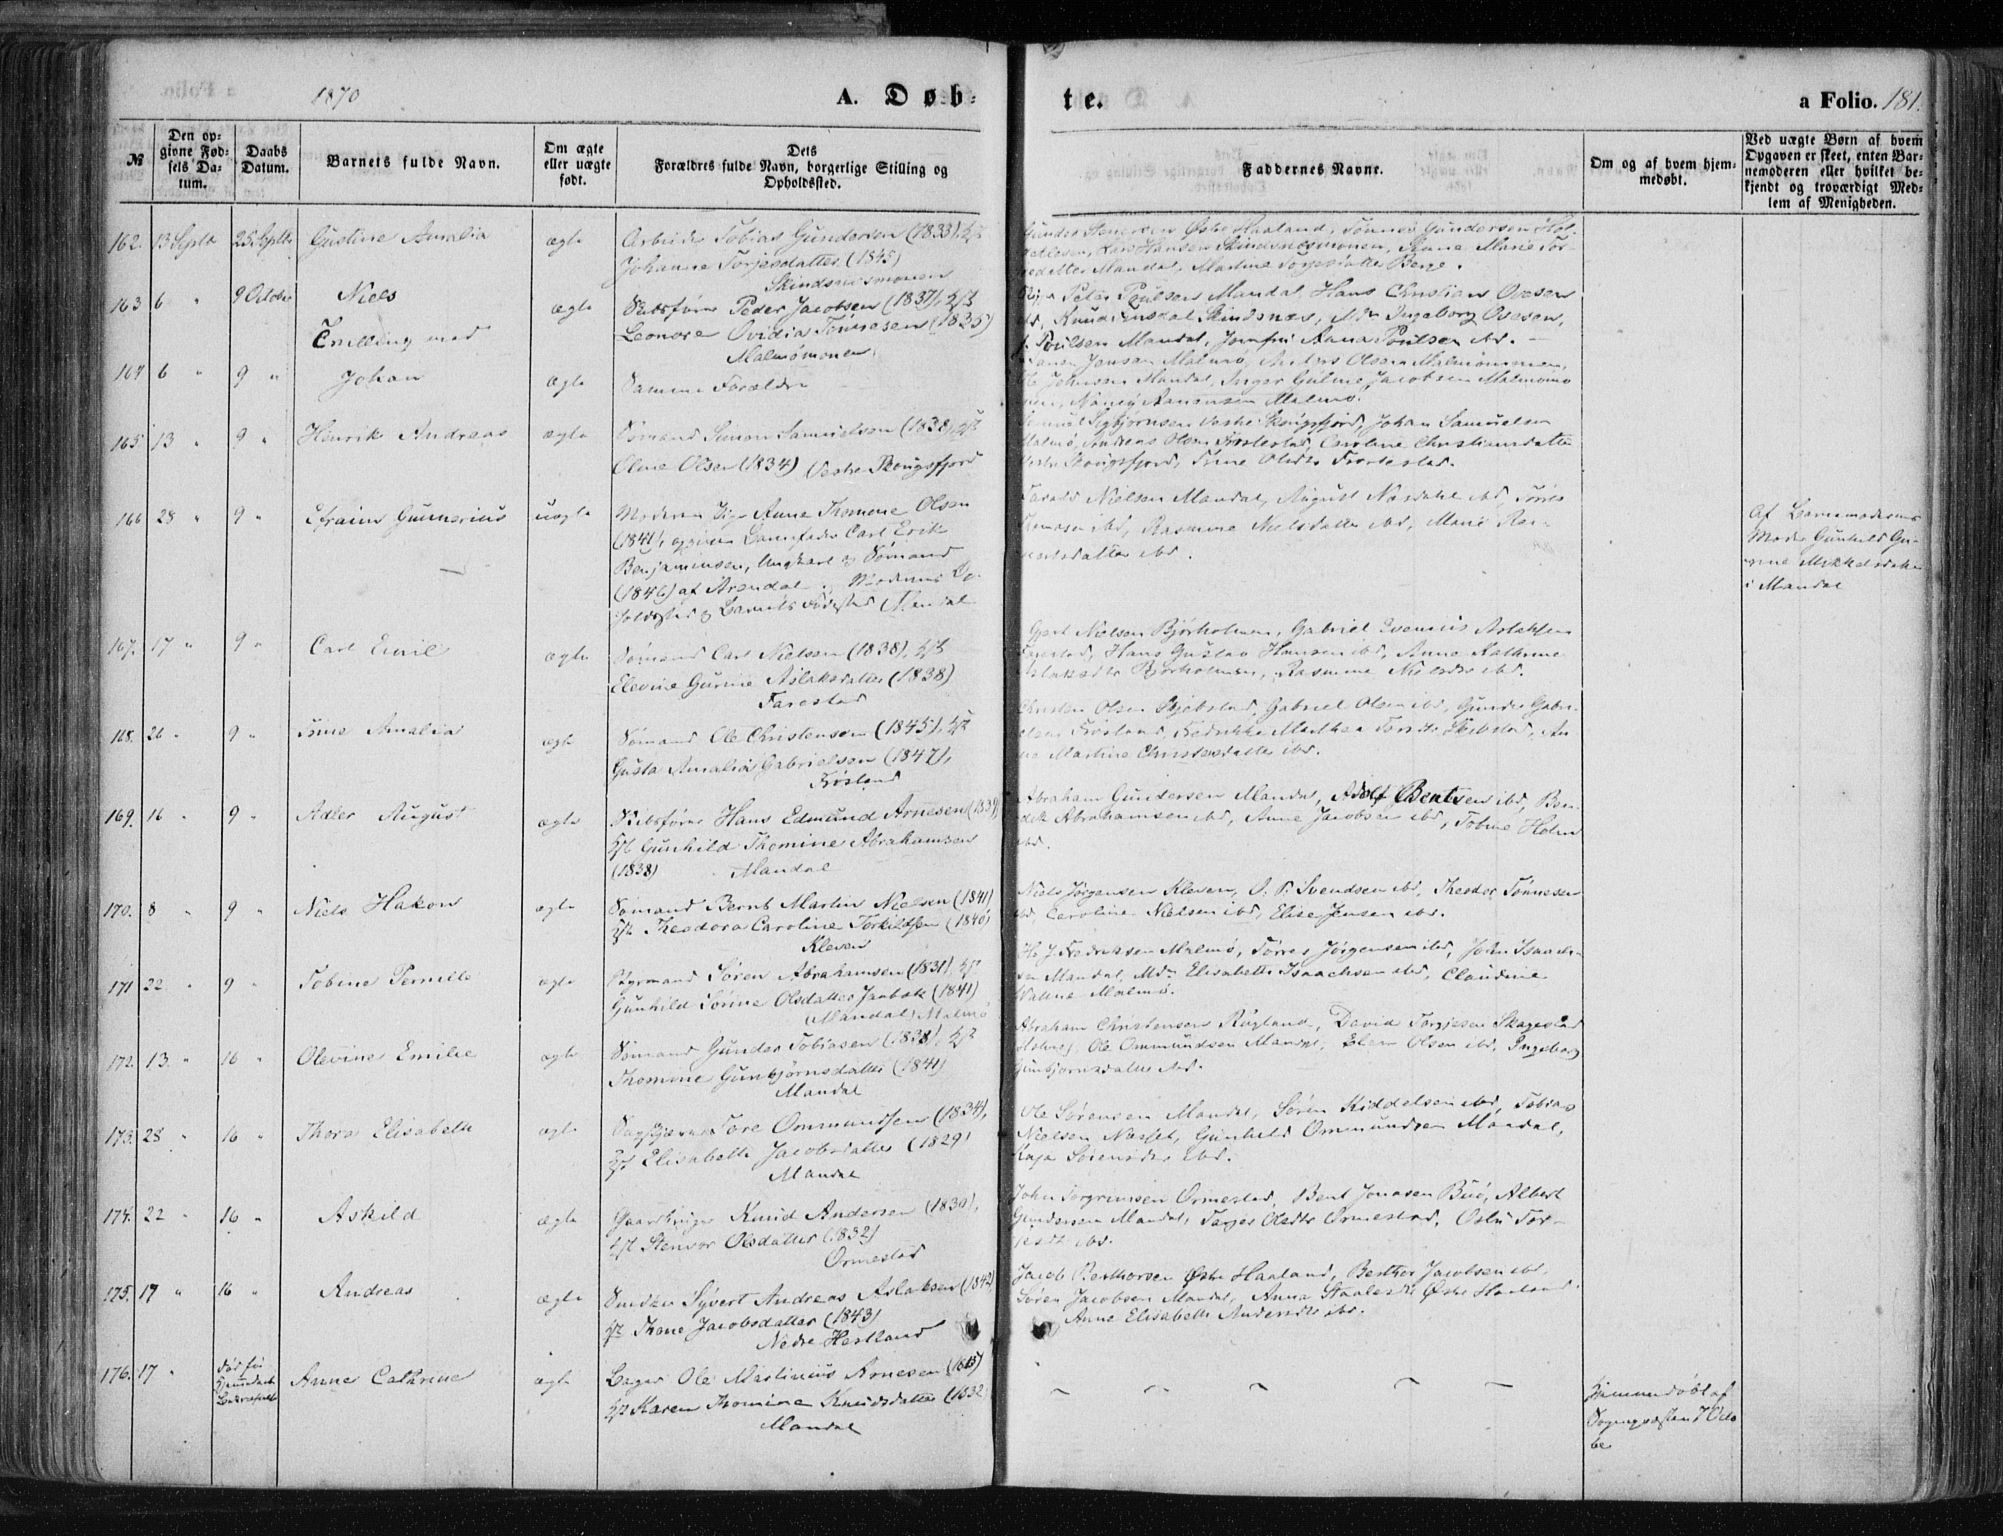 1870
A. Døb-
te.
a Folio. 181.
№
Den op-
givne Fød-
sels Da-
tum.
Daabs
Datum.
Barnets fulde Navn.
Om ægte
eller uægte
født.
Dets
Forældres fulde Navn, borgerlige Stilling og
Opholdssted.
Faddernes Navne.
Om og af hvem hjem-
medøbt.
Ved uægte Børn af hvem
Opgaven er skeet, enten Bar-
nemoderen eller hvilket be-
kjendt og troværdigt Med-
lem af Menigheden.
162. 13 Septb 25 Septb Gustine Amalia ægte Arbeider Tobias Gundersen (1833), Hst
Johanne Torjesdatter (1845)
Skindsnæsmonen
Gunder Østre Haaland, Tønnes Gundersen
Hansen Skindsnæsmonen, Marie Tor-
datter Mandal, Martine Torjesdatter Berge.
163 6 " 9 October Niels
Tvilling med
ægte Skibsfører Peder Jacobsen (1837), Hst
Leonore Ovidia Tønnesen (1835)
Malmømonen
Peter Poulsen Mandal, Hans Christian Ovesen
ibd, Knud Skindsnæs, Mdm Ingeborg Ovesen,
Poulsen Mandal, Jomfru Anna Poulsen ibd.
164 6 " 9 " Johan ægte Samme Forældre
Jensen Malmø, Olsen Malmømonen,
Johnsen Mandal, Inger Guline Jacobsen Malmømo-
nen, Nancy Aanensen Malmø.
165 13 " 9 " Henrik Andreas ægte Sømand Simon Samuelsen (1838), Hst
Oline Olsen (1834) Vestre Skougsfjord
Samuel Sigbjørnsen Vestre Skougsfjord, Johan Samuelsen
Malmø, Andreas Olsen, Caroline Christiansdatter
Vestre Skougsfjord, Trine Olsdtr
166 28 " 9 " Efraim Gunnerius uægte Moderen Pige Anne Thomine Olsen
(1841), opgiven Barnefader Carl Erik
Benjaminsen, Ungkarl og Sømand
(1846) af Arendal. Moderens Op-
holdssted og Barnets Fødested Mandal
Nielsen Mandal, August Næsdahl ibd,
ibd, Rasmine Nielsdatter ibd, Marie
datter ibd.
Af Barnemoderens
Moder Gunhild Gu-
rine Mikkelsdatter
i Mandal
167. 17 " 9 " Carl Emil ægte Sømand Carl Nielsen (1838), Hst
Elevine Gurine Aslaksdatter (1838)
Farestad
Gjert Nielsen Bjørholmen, Gabriel Evenius Aslaksen
Farestad, Hans Gustav Hansen ibd, Anne Kathrine
Aslaksdtr Bjørholmen, Rasmine Nielsdtr ibd.
168. 26 " 9 " Tine Amalia ægte Sømand Ole Christensen (1845), Hst
Gusta Amalia Gabrielsen (1847),
Frøsland
Christen Olsen Skjebstad, Gabriel Olsen ibd, Gunder Gabri-
elsen Frøsland, Fredrikke Marthea Skjebstad, An-
ne Martine Christensdatter ibd.
169. 16 " 9 " Adler August ægte Skibsfører Hans Edmund Arnesen (1839)
Hst Gunhild Thomine Abrahamsen
(1838) Mandal
Abraham Gundersen Mandal, Adolf Bentsen ibd, Ben-
dik Abrahamsen ibd, Anne Jacobsen ibd, Tobine Holm
ibd.
170. 8 " 9 " Niels Hakon ægte Sømand Bernt Martin Nielsen (1841)
Hst Theodora Caroline Torkildsen (1840)
Kleven
Niels Jørgensen Kleven, O. P. Svendsen ibd, Theodor Tønnesen
ibd, Caroline Nielsen ibd, Elise Jensen ibd.
171 22 " 9 " Tobine Pernille ægte Styrmand Søren Abrahamsen (1831), Hst
Gunhild Tørine Olsdatter Jaabæk (1841)
(Mandal) Malmø
H. J. Fredriksen Malmø, Tørres Jørgensen ibd, John Isaach-
sen Mandal, Mdm Elisabeth Isaachsen ibd, Claudine
Malmø.
172. 13. " 16 " Olevine Emilie ægte Sømand Gunder Tobiasen (1838), Hst
Thomine Gunbjørnsdatter (1841)
Mandal
Abraham Christensen Rugland, David Torgjesen Skagestad
Ole Ommundsen Mandal, Olsen ibd, Ingeborg
Gunbjørnsdatter ibd.
173. 28 " 16 " Thora Elisabeth ægte Tore Ommundsen (1834),
Hst Elisabeth Jacobsdatter (1829)
Mandal
Ole Sørensen Mandal, Søren Kiddelsen ibd, Tobias
Nielsen Næsset, Gunhild Ommundsen Mandal,
Kaja Sørensdtr ibd.
174. 22 " 16 " Askild ægte Gaardbruger Knud Andersen (1830),
Hst Stensør Olsdatter (1832)
Ormestad
John Torgrimsen Ormestad, Bent Jonasen Buø, Albert
Gundersen Mandal, Olsdtr Ormestad, Tor-
jesdt ibd.
175. 17 " 16 " Andreas ægte Snedker Syvert Andreas Aslaksen (1842)
Hst Thone Jacobsdatter (1843)
Nedre Hestland
Jacob Berthorsen Østre Haaland, Berthor Jacobsen ibd,
Søren Jacobsen Mandal, Anna Staalesdtr Østre Haaland
Anne Elisabeth Andersdtr ibd.
176. 17 " død før
Anne Cathrine ægte Bager Ole Martinius Arnesen (1815)
Hst Karen Thomine Knudsdatter (1832)
Mandal
Hjemmedøbt af
Sognepræsten 7 Octo-
ber